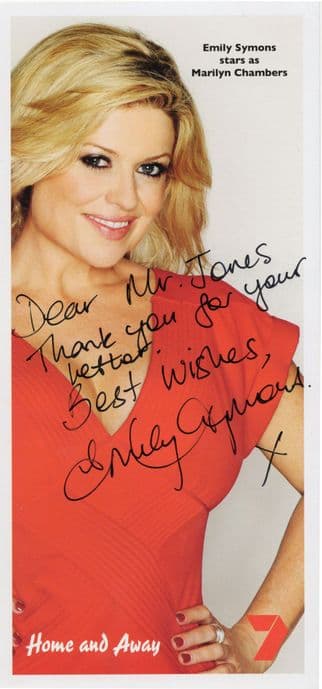 Emily Symons
stars as
Marilyn Chambers
Dear Mr. Jones
Thank you for your
letter.
Best Wishes,
Emily Symons.
x
Home and Away
7